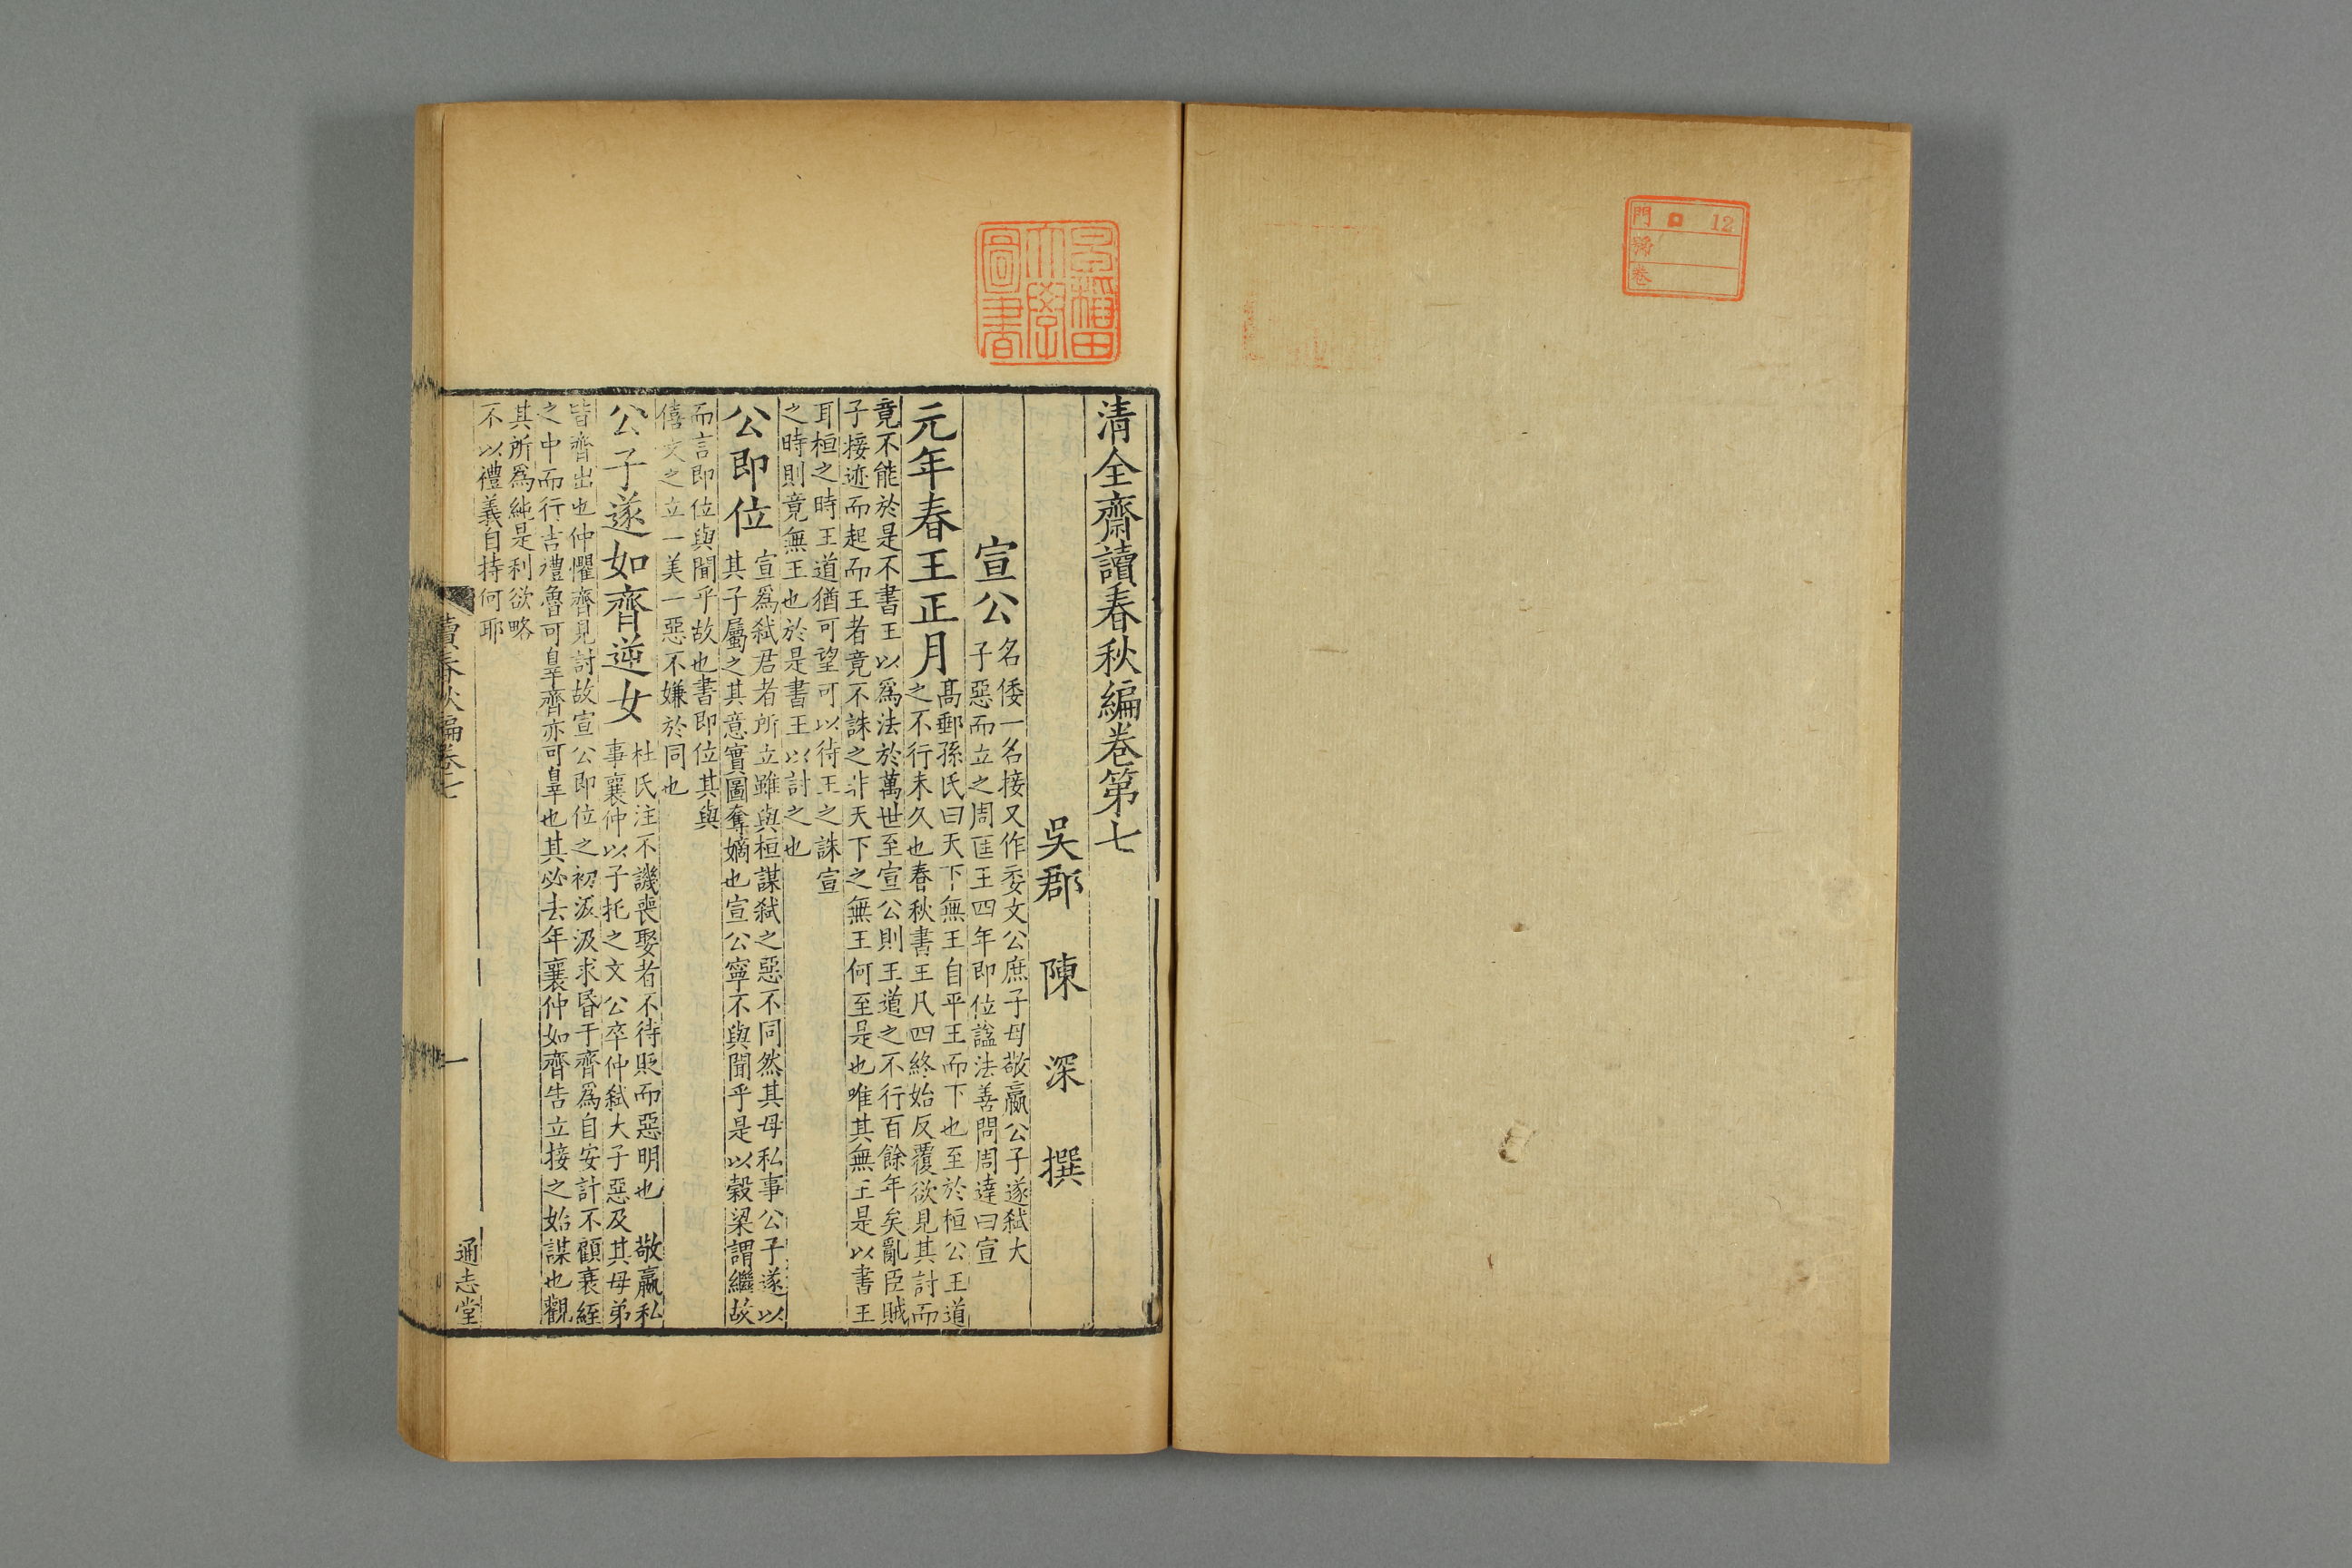 門 口 12
號
卷
早稲田大學圖書
清全齋讀春秋編卷第七
吳郡 陳 深 撰
宣公
名倭一名接又作委文公庶子母敬嬴公子遂弑大
子惡而立之周匡王四年即位諡法善問周達曰宣
元年春王正月
髙郵孫氏曰天下無王自平王而下也至於桓公王道
之不行未久也春秋書王凡四終始反覆欲見其討而
竟不能於是不書王以爲法於萬世至宣公則王道之不行百餘年矣亂臣賊
子接迹而起而王者竟不誅之非天下之無王何至是也唯其無王是以書王
耳桓之時王道猶可望可以待王之誅宣
之時則竟無王也於是書王以討之也
公即位
宣爲弑君者所立雖與桓謀弑之惡不同然其母私事公子遂以
其子屬之其意實圖奪嫡也宣公寧不與聞乎是以榖梁謂繼故
而言即位與聞乎故也書即位其與
僖文之立一美一惡不嫌於同也
公子遂如齊逆女
杜氏注不譏喪娶者不待貶而惡明也 敬嬴私
事襄仲以子托之文公卒仲弑大子惡及其母弟
皆齊出也仲懼齊見討故宣公即位之初汲汲求昏于齊爲自安計不顧衰絰
之中而行吉禮魯可辠齊亦可辠也其必去年襄仲如齊告立接之始謀也觀
其所爲純是利欲略
不以禮義自持何耶
讀春秋編卷七
一
通志堂